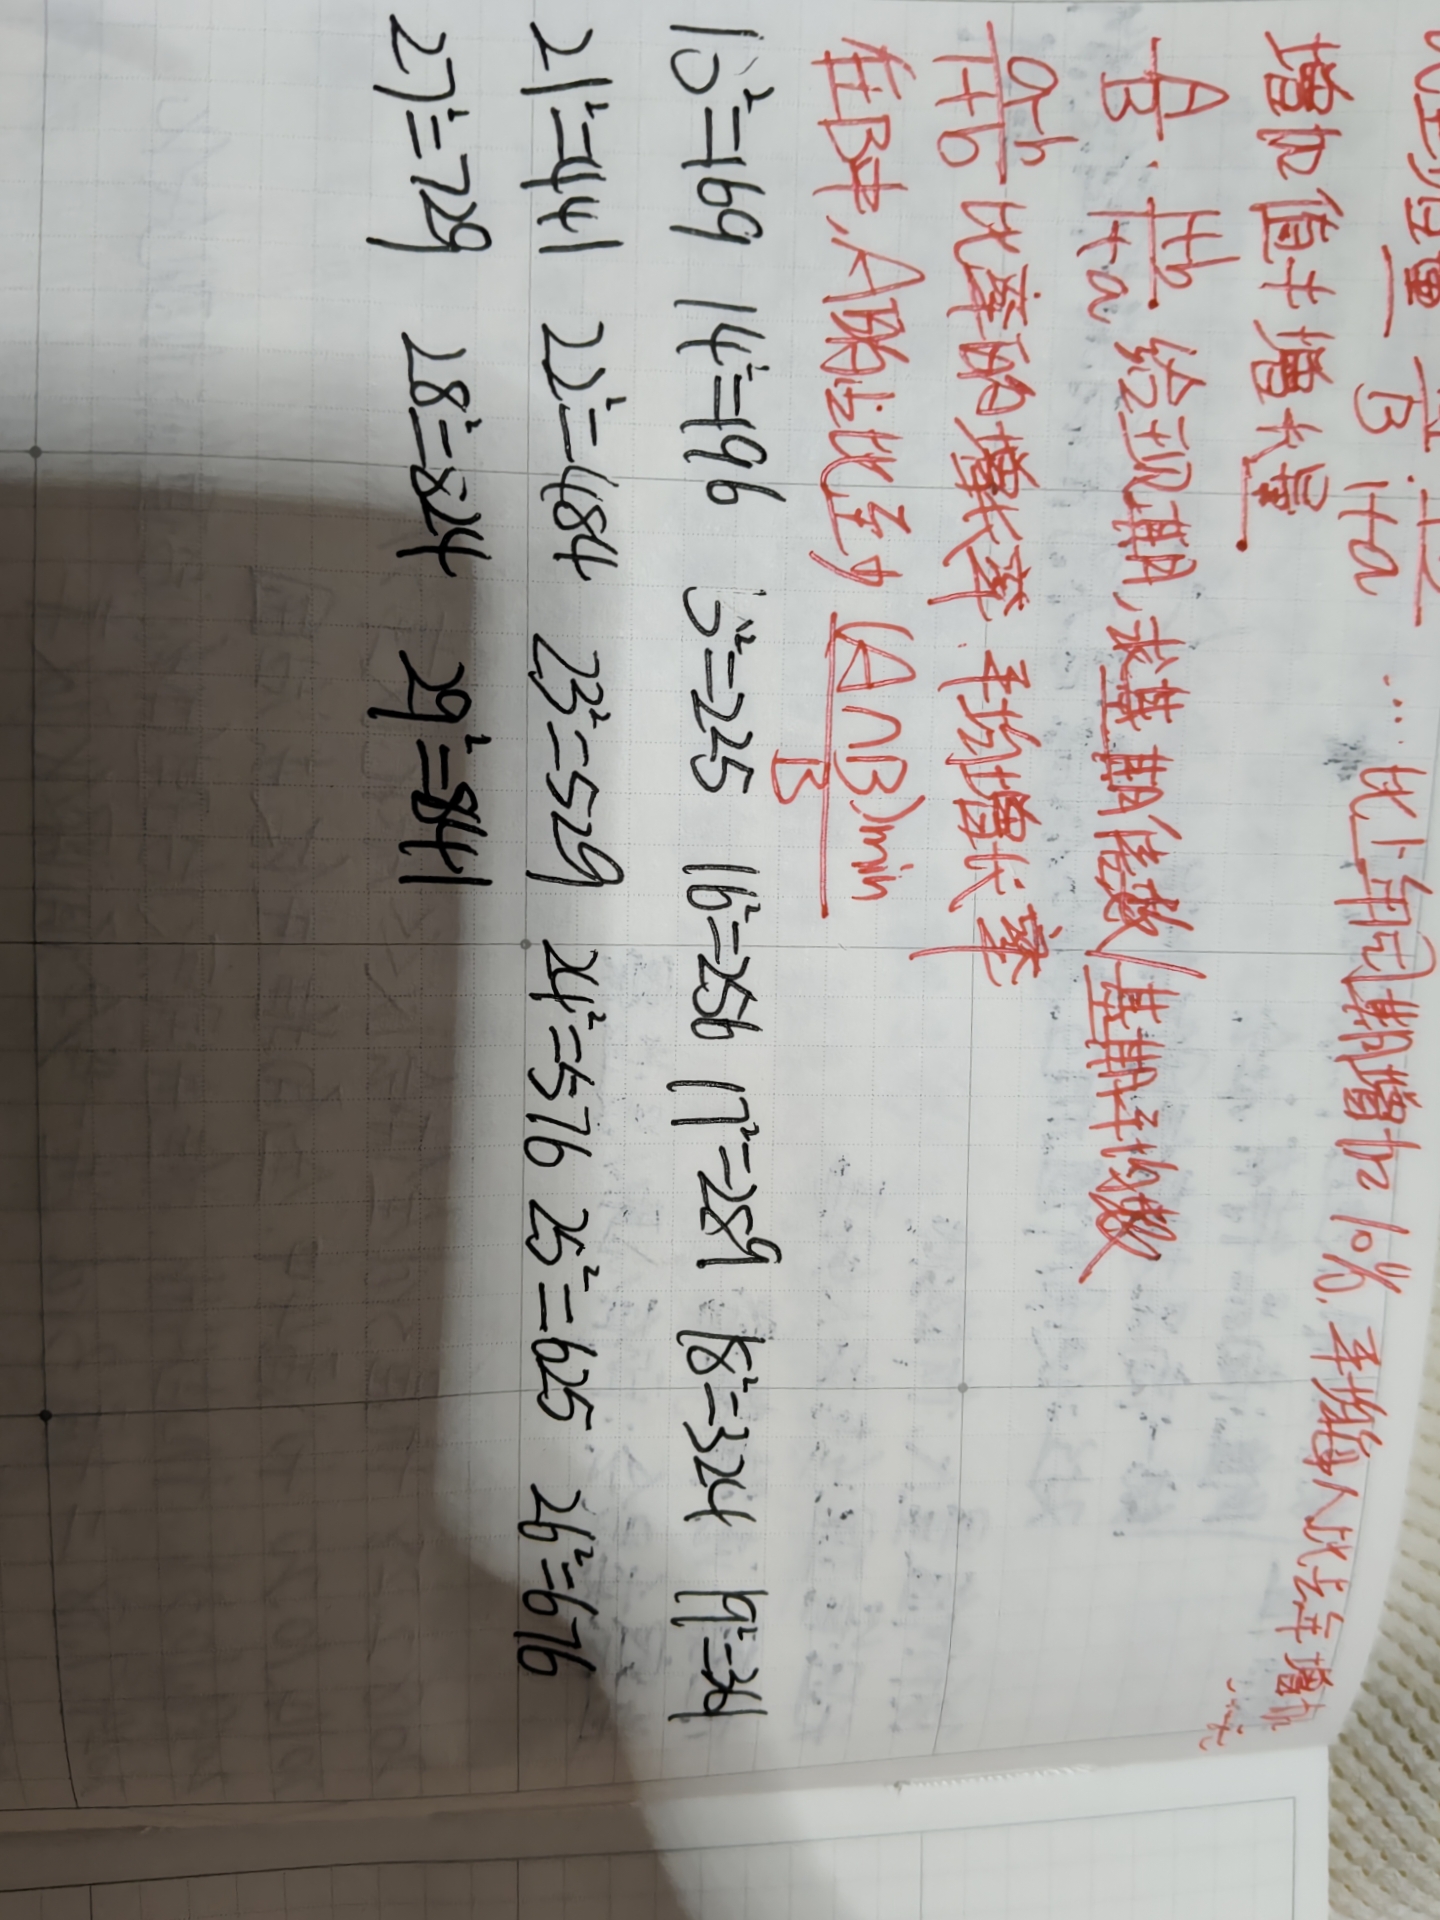 比上年同期增加10%.
增加值≠增长量.
A/B · 1+b/1+a. 给现期,求基期倍数/基期平均数
a-b/1+b 比率的增长率.平均增长率
在B中,A的占比至少 (A∩B)min/B
13²=169 14²=196 5²=225 16²=256 17²=289 18²=324 19²=361
21²=441 22²=484 23²=529 24²=576 25²=625 26²=676
27²=729 28²=824 29²=841